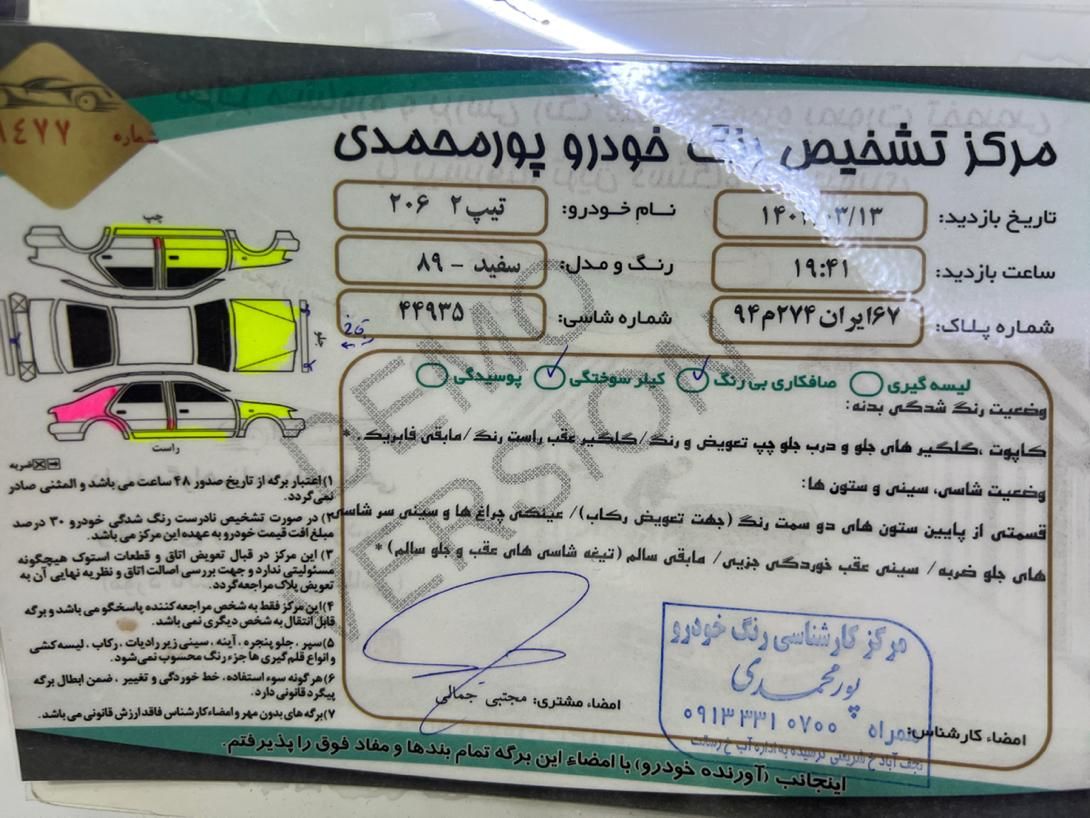 شماره
مرکز تشخیص رنگ خودرو پورمحمدی
تاریخ بازدید:
نام خودرو: تیپ ۲ ۲۰۶
ساعت بازدید: ۱۹:۴۱
رنگ و مدل: سفید - ۸۹
شماره پلاک: ۶۷ایران۲۷۴م۹۴
شماره شاسی: ۴۴۹۳۵
لیسه گیری صافکاری بی رنگ کیلر سوختگی پوسیدگی
وضعیت رنگ شدگی بدنه:
کاپوت ،گلگیر های جلو و درب جلو چپ تعویض و رنگ/گلگیر عقب راست رنگ/مابقی فابریک. *
وضعیت شاسی، سینی و ستون ها:
قسمتی از پایین ستون های دو سمت رنگ (جهت تعویض رکاب)/ عینکی چراغ ها و سینی سر شاسی
های جلو ضربه/ سینی عقب خوردگی جزیی/ مابقی سالم (تیغه شاسی های عقب و جلو سالم) *
چپ
جلو
راست
ضربه
۱) اعتبار برگه از تاریخ صدور ۴۸ ساعت می باشد و المثنی صادر
نمی‌گردد.
۲) در صورت تشخیص نادرست رنگ شدگی خودرو ۳۰ درصد
مبلغ افت قیمت خودرو به عهده این مرکز می باشد.
۳) این مرکز در قبال تعویض اتاق و قطعات استوک هیچگونه
مسئولیتی ندارد و جهت بررسی اصالت اتاق و نظریه نهایی آن به
تعویض پلاک مراجعه گردد.
۴) این مرکز فقط به شخص مراجعه کننده پاسخگو می باشد و برگه
قابل انتقال به شخص دیگری نمی باشد.
۵) سپر ، جلو پنجره ، آینه ، سینی زیر رادیات ، رکاب ، لیسه کشی
و انواع قلم گیری ها جزء رنگ محسوب نمی‌شود.
۶) هر گونه سوء استفاده، خط خوردگی و تغییر ، ضمن ابطال برگه
پیگرد قانونی دارد.
۷) برگه های بدون مهر و امضاء کارشناس فاقد ارزش قانونی می باشد.
DEMO
VERSION
امضاء مشتری: مجتبی جمالی
امضاء کارشناس:
مرکز کارشناسی رنگ خودرو
پورمحمدی
همراه ۰۹۱۳ ۳۳۱ ۰۷۰۰
اینجانب (آورنده خودرو) با امضاء این برگه تمام بندها و مفاد فوق را پذیرفتم.